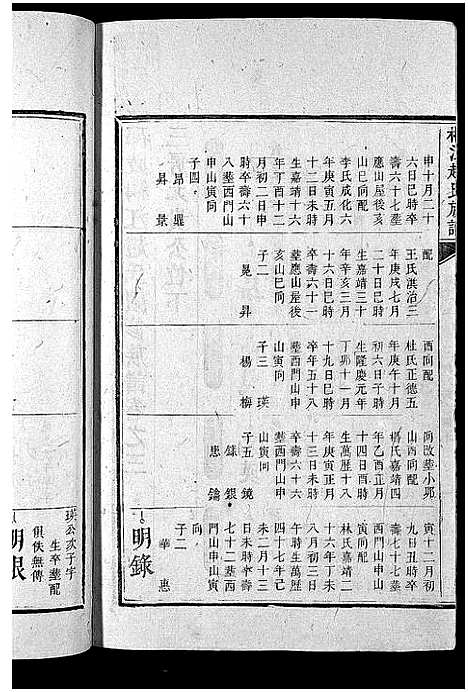 江趙氏族譜
申十月二十
六日巳時卒
壽六十七塟
應山屋後亥
山巳向配
李氏成化六
年庚寅五月
十二日未時
生嘉靖十六
年丁酉十二
月初二日申
時卒壽六十
八塟西門山
申山寅向
子四
昂 堒
昇 景
配
王氏洪治三
年庚戌七月
二十日巳時
生嘉靖三十
年辛亥三月
十六日巳時
卒壽六十一
塟應山屋後
亥山巳向
子二
晃 昇
酉向配
杜氏正德五
年庚午十月
初六日子時
生隆慶元年
丁卯十一月
十九日巳時
卒年五十八
塟西門山申
山寅向
子三 瑛
楊 梅
向改塟小
山酉向配
楊氏嘉靖四
年乙酉正月
十四日酉時
生萬歷十八
年庚寅正月
十三日未時
卒壽六十六
塟西門山申
山寅向
子五 鏡
錄 銀
思 鑰
寅十二月初
九日丑時卒
壽七十七塟
西門山申山
寅向配
林氏嘉靖二
十六年丁未
八月初三日
午時生萬歷
四十七年己
未二月十三
日未時卒壽
七十二塟西
門山申山寅
向
子二
華 惠
明錄
瑛公次子字
生卒塟配
俱佚無傳
明銀